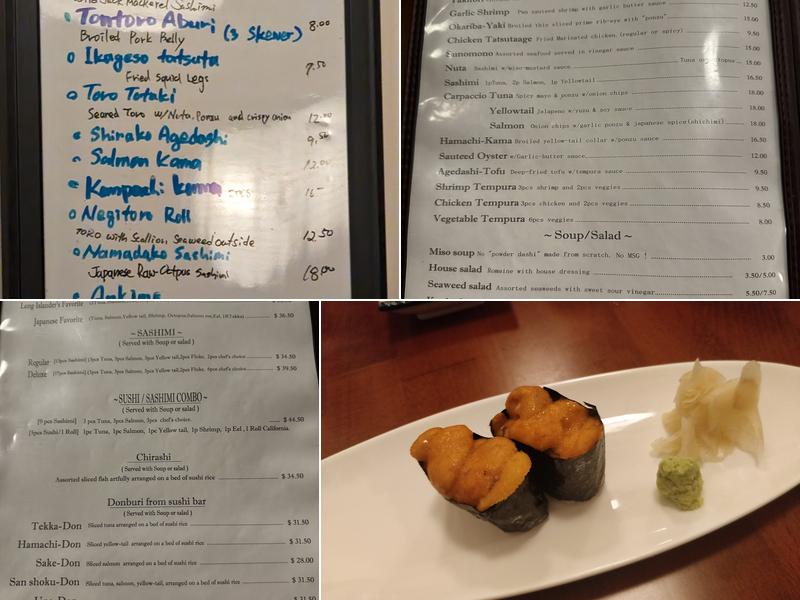 Jack Mackerel Sashimi
Tontoro Aburi (3 skewer) 8.00
Broiled Pork Belly
Ikageso tatsuta 7.50
Fried Squid Legs
Toro Tataki
Seared Toro w/Nuta, Ponzu and crispy onion 12.00
Shirako Agedashi 9.50
Salmon Kama 12.00
Kampachi kama 2pcs 16-
Negitoro Roll
TORO with Scallion, Seaweed outside 12.50
Namadako Sashimi
Japanese Raw Octpus Sashimi 18.00
Ankimo
12.50
Garlic Shrimp Pan sauteed shrimp with garlic butter sauce
Okariba-Yaki Broiled thin sliced prime rib-eye with "ponzu" 15.00
Chicken Tatsutaage Fried Marinated chicken, (regular or spicy) 9.50
Sunomono Assorted seafood served in vinegar sauce 15.00
Nuta Sashimi w/miso-mustard sauce Tuna or octopus 15.00
Sashimi 1pTuna, 2p Salmon, 1p Yellowtail 16.50
Carpaccio Tuna Spicy mayo & ponzu w/onion chips 18.00
Yellowtail Jalapeno w/yuzu & soy sauce 18.00
Salmon Onion chips w/garlic ponzu & japanese spice(shichimi) 18.00
Hamachi-Kama Broiled yellow-tail collar w/ponzu sauce 16.50
Sauteed Oyster w/Garlic-butter sauce 12.00
Agedashi-Tofu Deep-fried tofu w/tempura sauce 9.50
Shrimp Tempura 3pcs shrimp and 2pcs veggies 9.50
Chicken Tempura 3pcs chicken and 2pcs veggies 8.50
Vegetable Tempura 6pcs veggies 8.00
~ Soup/Salad ~
Miso soup No "powder dashi" made from scratch. No MSG ! 3.00
House salad Romaine with house dressing 3.50/5.00
Seaweed salad Assorted seaweeds with sweet sour vinegar 5.50/7.50
Long Islander's Favorite
Japanese Favorite (Tuna, Salmon, Yellow tail, Shrimp, Octopus, Salmon roe, Eel, 1R Tekka) $ 36.50
~SASHIMI~
( Served with Soup or salad )
Regular [13pcs Sashimi] (3pcs Tuna, 3pcs Salmon, 3pcs Yellow tail, 2pcs Fluke, 2pcs chef's choice $ 34.50
Deluxe [17pcs Sashimi] (3pcs Tuna, 3pcs Salmon, 3pcs Yellow tail, 2pcs Fluke, 6pcs chef's choice $ 39.50
~SUSHI / SASHIMI COMBO~
( Served with Soup or salad )
[9 pcs Sashimi] 3 pcs Tuna, 3pcs Salmon, 3pcs chef's choice. $ 44.50
[5pcs Sushi/1 Roll] 1pc Tuna, 1pc Salmon, 1pc Yellow tail, 1p Shrimp, 1p Eel ,1 Roll California.
Chirashi
( Served with Soup or salad )
Assorted sliced fish artfully arranged on a bed of sushi rice $ 34.50
Donburi from sushi bar
( Served with Soup or salad )
Tekka-Don Sliced tuna arranged on a bed of sushi rice $ 31.50
Hamachi-Don Sliced yellow-tail arranged on a bed of sushi rice $ 31.50
Sake-Don Sliced salmon arranged on a bed of sushi rice $ 28.00
San shoku-Don Sliced tuna, salmon, yellow-tail, arranged on a bed of sushi rice $ 31.50
$ 31.50